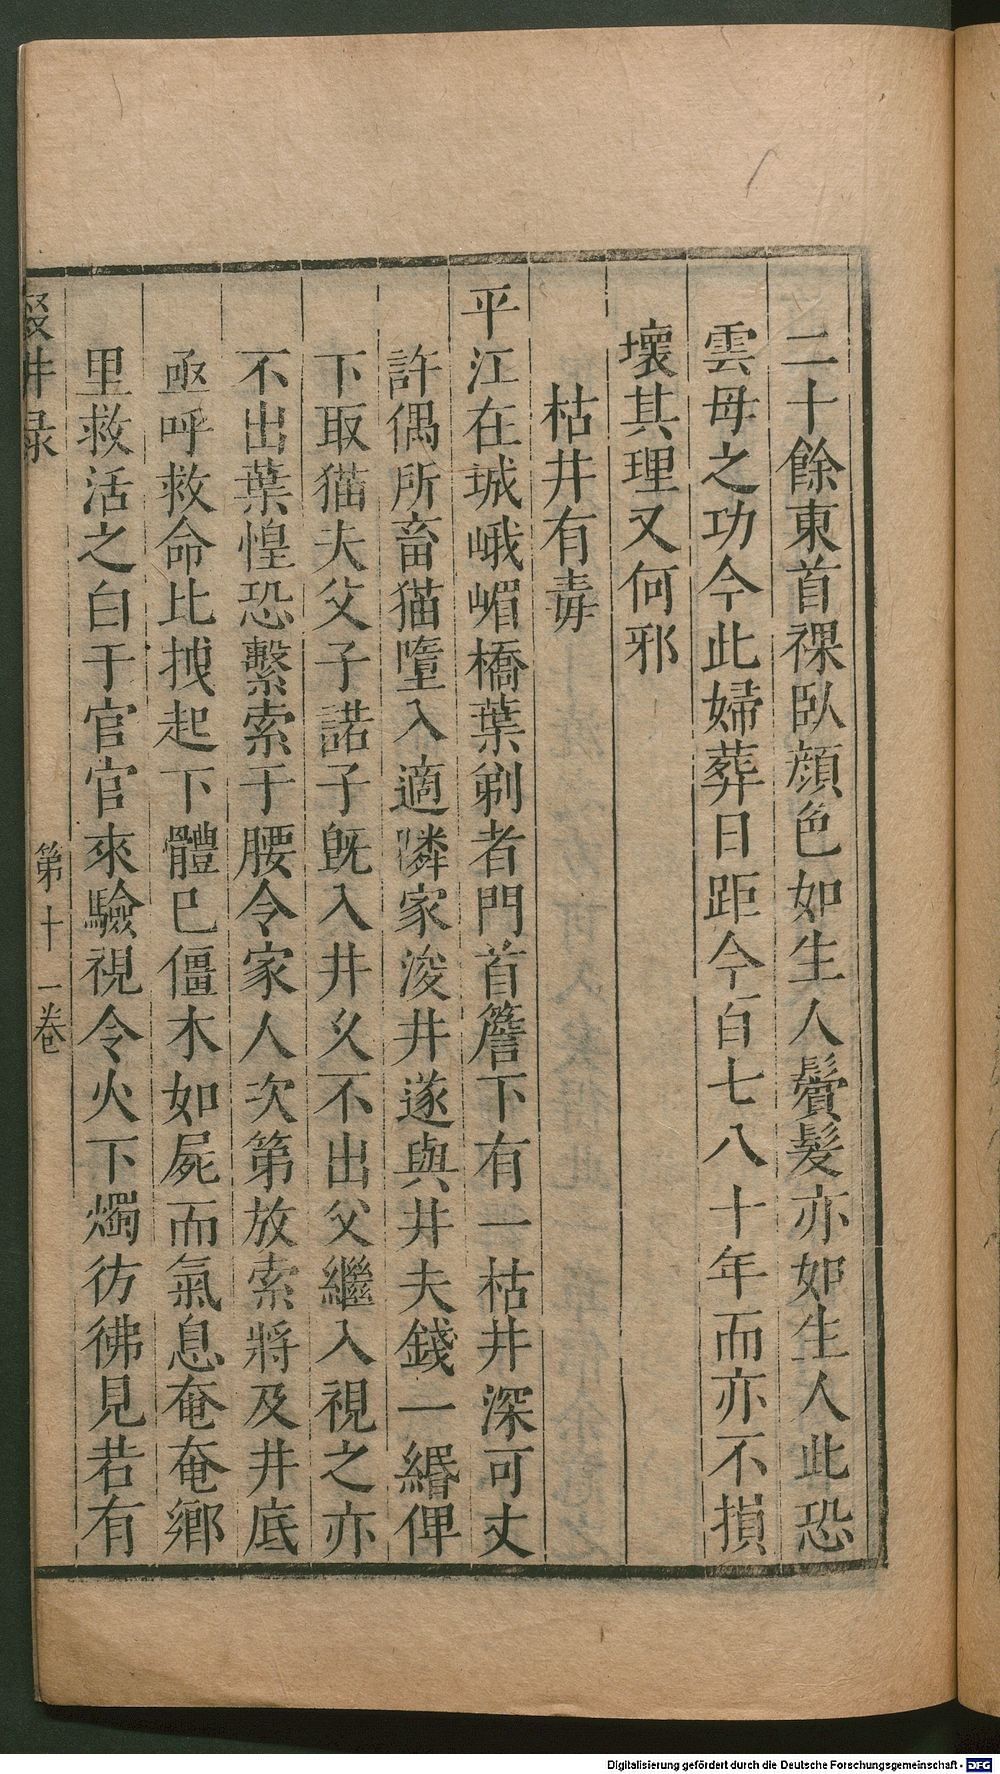 二十餘東首裸臥顔色如生人鬢髮亦如生人此恐
雲母之功今此婦葬日距今百七八十年而亦不損
壞其理又何邪
枯井有毒
平江在城峨嵋橋葉剃者門首簷下有一枯井深可丈
許偶所畜猫墮入適隣家浚井遂與井夫錢一緡俾
下取猫夫父子諾子旣入井久不出父繼入視之亦
不出葉惶恐繫索于腰令家人次第放索將及井底
亟呼救命比拽起下體已僵木如屍而氣息奄奄鄉
里救活之白于官官來驗視令火下燭彷彿見若有
第十一卷
Digitalisierung gefördert durch die Deutsche Forschungsgemeinschaft - DFG